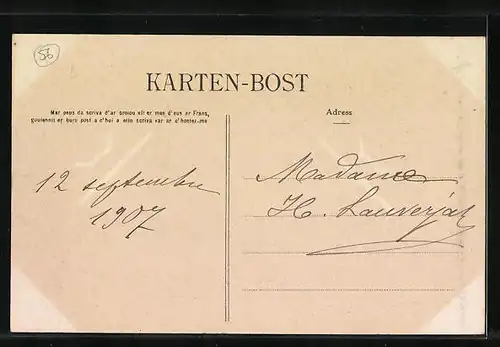 56
KARTEN-BOST
Mar peus da scriva d'ar broiou all er mes d'eus ar Frans,
gouennit er buro post a c'hui a elle scriva var ar c'hostez-ma
Adress
12 septembre
1907
Madame
H. Lauverjat